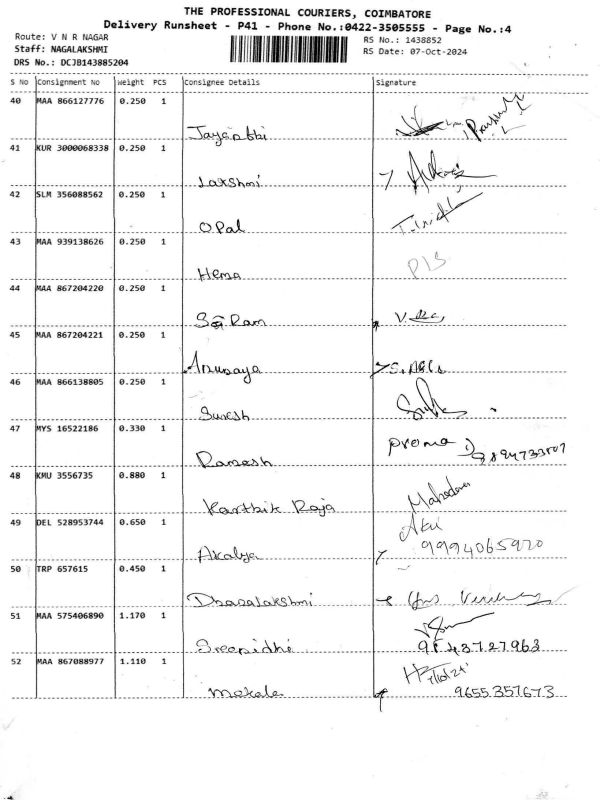 THE PROFESSIONAL COURIERS, COIMBATORE
Delivery Runsheet - P41 - Phone No.:0422-3505555 - Page No.:4
Route: V N R NAGAR
RS No.: 1438852
Staff: NAGALAKSHMI
RS Date: 07-Oct-2024
DRS No.: DCJB143885204
S No Consignment No Weight PCS Consignee Details Signature
40 MAA 866127776 0.250 1
41 KUR 3000068338 0.250 1
Lakshmi
42 SLM 356088562 0.250 1
Opal
43 MAA 939138626 0.250 1
Hema
44 MAA 867204220 0.250 1
Sai Ram
45 MAA 867204221 0.250 1
Anusaya
46 MAA 866138805 0.250 1
Suresh
47 MYS 16522186 0.330 1
Ramesh Prema
48 KMU 3556735 0.880 1
Karthik Raja
49 DEL 528953744 0.650 1
Akalya 9994065920
50 TRP 657615 0.450 1
Dhanalakshmi
51 MAA 575406890 1.170 1
Sreenidhi
52 MAA 867088977 1.110 1
Mekala 9655357673